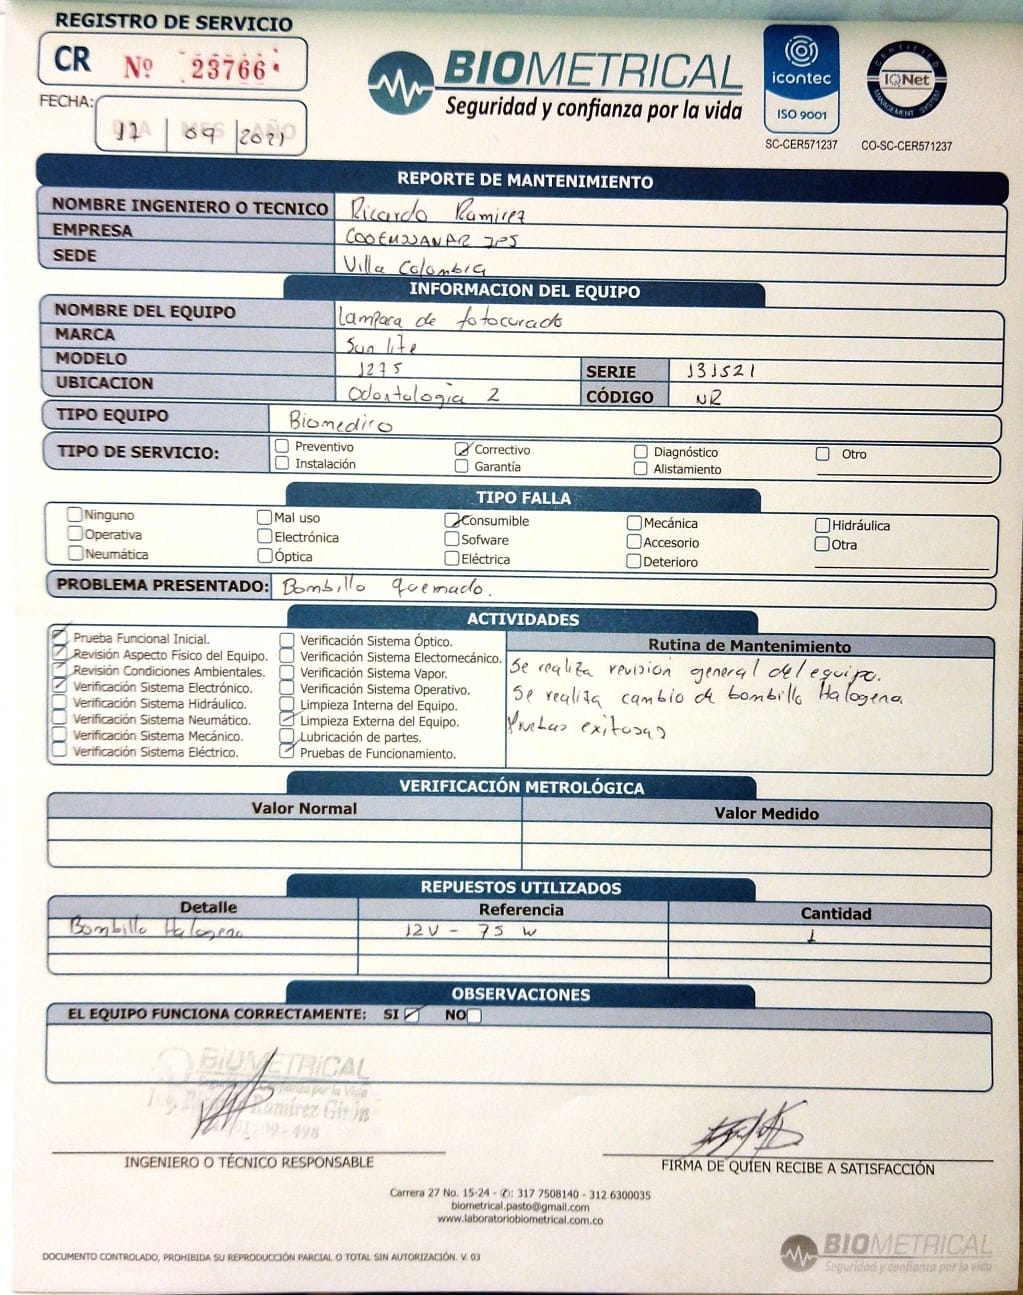 REGISTRO DE SERVICIO
CR Nº 23766
FECHA: 17 09 2021
BIOMETRICAL
Seguridad y confianza por la vida
icontec
ISO 9001
SC-CER571237
CERTIFIED
IQNet
MANAGEMENT SYSTEM
CO-SC-CER571237
REPORTE DE MANTENIMIENTO
NOMBRE INGENIERO O TECNICO Ricardo Ramirez
EMPRESA IPS
SEDE Villa Colombia
INFORMACION DEL EQUIPO
NOMBRE DEL EQUIPO Lampara de fotocurado
MARCA Sun lite
MODELO 1275 SERIE 131521
UBICACION Odontologia 2 CÓDIGO NR
TIPO EQUIPO Biomedico
TIPO DE SERVICIO: Preventivo Correctivo Diagnóstico Otro
Instalación Garantía Alistamiento
TIPO FALLA
Ninguno Mal uso Consumible Mecánica Hidráulica
Operativa Electrónica Sofware Accesorio Otra
Neumática Óptica Eléctrica Deterioro
PROBLEMA PRESENTADO: Bombillo quemado.
ACTIVIDADES
Prueba Funcional Inicial.
Revisión Aspecto Físico del Equipo.
Revisión Condiciones Ambientales.
Verificación Sistema Electrónico.
Verificación Sistema Hidráulico.
Verificación Sistema Neumático.
Verificación Sistema Mecánico.
Verificación Sistema Eléctrico.
Verificación Sistema Óptico.
Verificación Sistema Electomecánico.
Verificación Sistema Vapor.
Verificación Sistema Operativo.
Limpieza Interna del Equipo.
Limpieza Externa del Equipo.
Lubricación de partes.
Pruebas de Funcionamiento.
Rutina de Mantenimiento
Se realiza revisión general del equipo.
Se realiza cambio de bombillo Halogena.
Pruebas exitosas
VERIFICACIÓN METROLÓGICA
Valor Normal Valor Medido
REPUESTOS UTILIZADOS
Detalle Referencia Cantidad
Bombillo Halogena 12V - 75 W 1
OBSERVACIONES
EL EQUIPO FUNCIONA CORRECTAMENTE: SI NO
BIOMETRICAL
Seguridad y Confianza por la Vida
Ramírez
INGENIERO O TÉCNICO RESPONSABLE
FIRMA DE QUIEN RECIBE A SATISFACCIÓN
Carrera 27 No. 15-24 - ✆: 317 7508140 - 312 6300035
biometrical.pasto@gmail.com
www.laboratoriobiometrical.com.co
DOCUMENTO CONTROLADO, PROHIBIDA SU REPRODUCCIÓN PARCIAL O TOTAL SIN AUTORIZACIÓN. V. 03
BIOMETRICAL
Seguridad y confianza por la vida